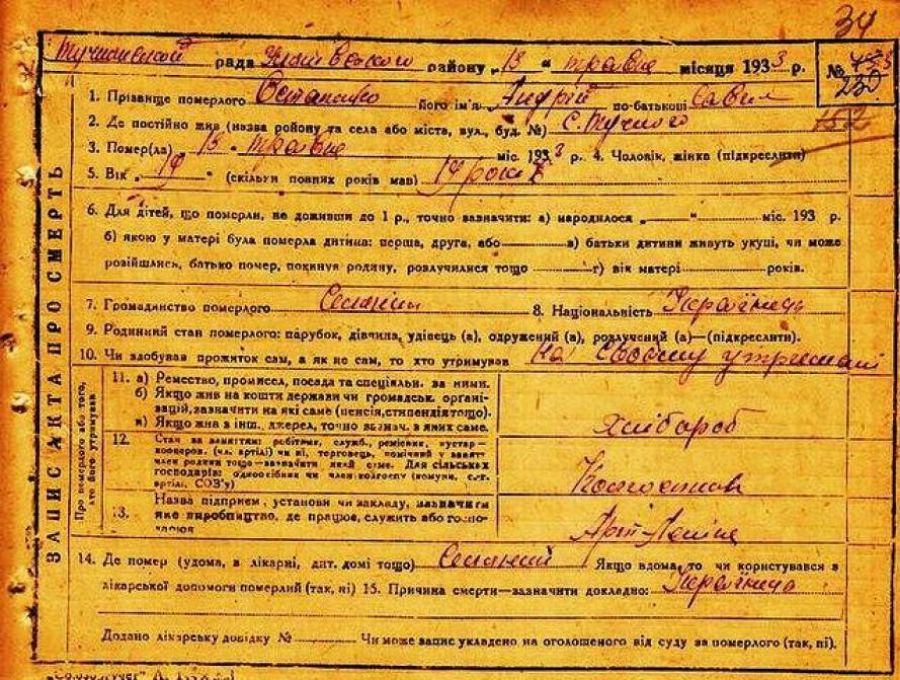 34
рада району „13“ травня місяця 1933 р. №
230
1. Прізвище померлого Остапенко його ім'я Андрій по-батькові Савич
152
2. Де постійно жив (назва району та села або міста, вул., буд. №) с.
3. Помер(ла) 13 травня міс. 1933 р. 4. Чоловік, жінка (підкреслити)
5. Вік „19“ (скільки повних років мав) 19 років
6. Для дітей, що померли, не доживши до 1 р., точно зазначити: а) народилося „ “ міс. 193 р.
б) якою у матері була померла дитина: перша, друга, або в) батьки дитини живуть укупі, чи може
розійшлись, батько помер, покинув родину, розлучилися тощо г) вік матері років.
7. Громадянство померлого Селянин 8. Національність Українець
9. Родинний стан померлого: парубок, дівчина, удівець (а), одружений (а), розлучений (а)—(підкреслити).
10. Чи здобував прожиток сам, а як не сам, то хто утримував на своєму утриманні
ЗАПИС АКТА ПРО СМЕРТЬ
Про померлого або того, хто його утримував
11. а) Ремество, промисел, посада та спеціяльн. за ними.
б) Якщо жив на кошти держави чи громадськ. органі-
зацій, зазначити на які саме (пенсія, стипендія тощо).
в) Якщо жив з інш. джерел, точно зазнач. в яких саме.
Хлібороб
12. Стан за заняттям: робітник, служб., ремісник, кустар-
кооперов. (чл. артілі) чи ні, торговець, помічний у занят.
член родини тощо—зазначити який саме. Для сільських
господарів: одноосібник чи член колгоспу (комуни, с.-г.
артілі, СОЗ'у)
Колгоспник
13. Назва підприєм., установи чи закладу, зазначити
яке виробництво, де працює, служить або госпо-
Арт Леніна
14. Де помер (удома, в лікарні, дит. домі тощо) Селянин Якщо вдома, то чи користувався з
лікарської допомоги померлий (так, ні) 15. Причина смерти—зазначити докладно: Українець
Додано лікарську довідку № Чи може запис укладено на оголошеного від суду за померлого (так, ні).